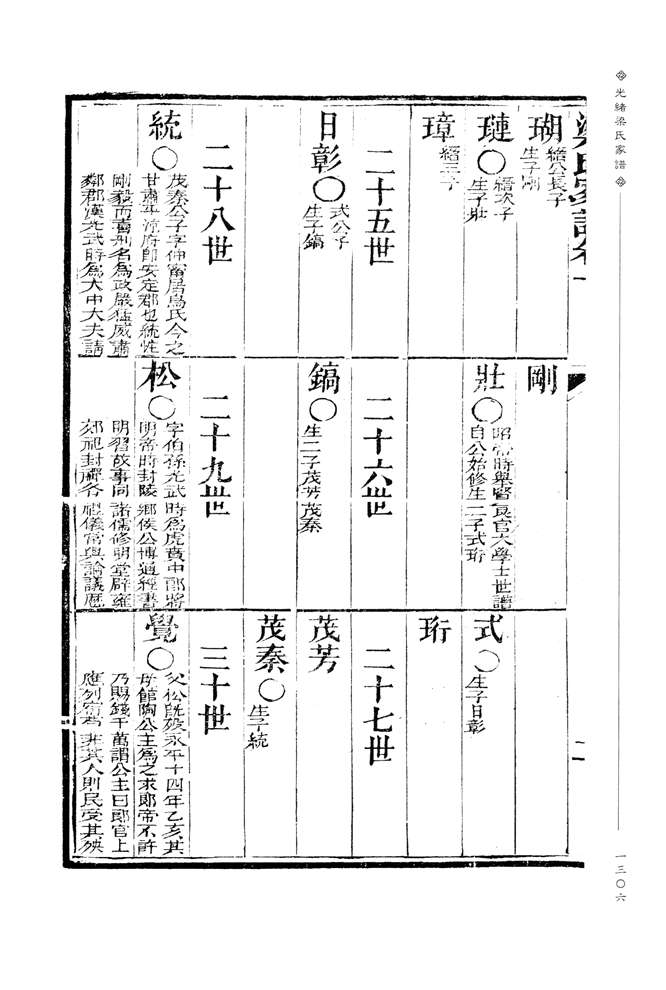 光緒梁氏家譜
一三〇六
梁氏家譜卷一
二
瑚 縉公長子
生子剛
璉〇 縉次子
生子壯
璋 縉三子
剛
壯〇 昭帝時舉賢良官大學士世譜
自公始修生二子式珩
式〇 生子日彰
珩
二十五世
二十六世
二十七世
日彰〇 式公子
生子鎬
鎬〇 生二子茂芳茂秦
茂芳
茂秦〇 生子統
二十八世
二十九世
三十世
統〇 茂秦公子字仲甯居烏氏今之
甘肅平涼府即安定郡也統性
剛毅而喜刑名為政嚴猛威肅
鄰郡漢光武時為大中大夫請
松〇 字伯孫光武時為虎賁中郎將
明帝時封陵鄉侯公博通經書
明習故事同諸儒修明堂辟雍
郊祀封禪各禮儀常與論議歷
覺〇 父松既歿永平十四年乙亥其
母館陶公主為之求郎帝不許
乃賜錢千萬謂公主曰郎官上
應列宿苟非其人則民受其殃